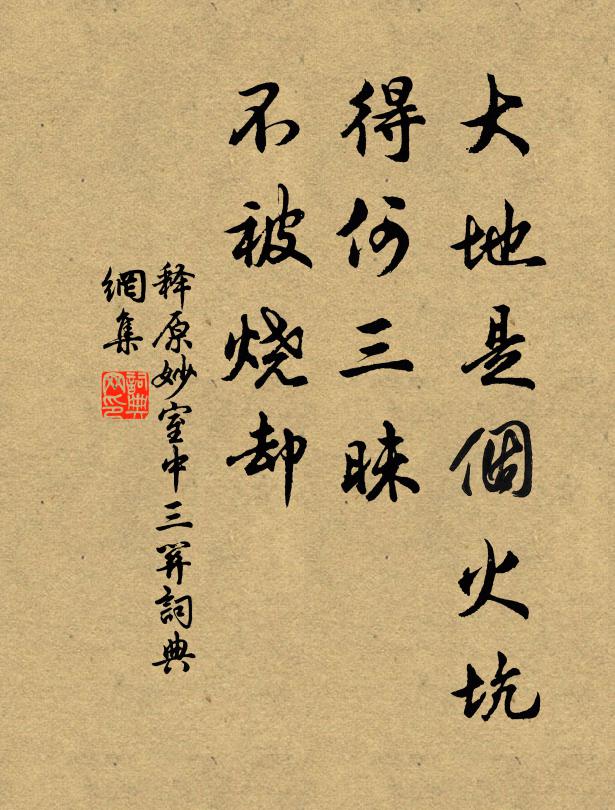 大地是個火坑
得何三昧
不被烧却
释原妙室中三关詞典
網集
詞典网印